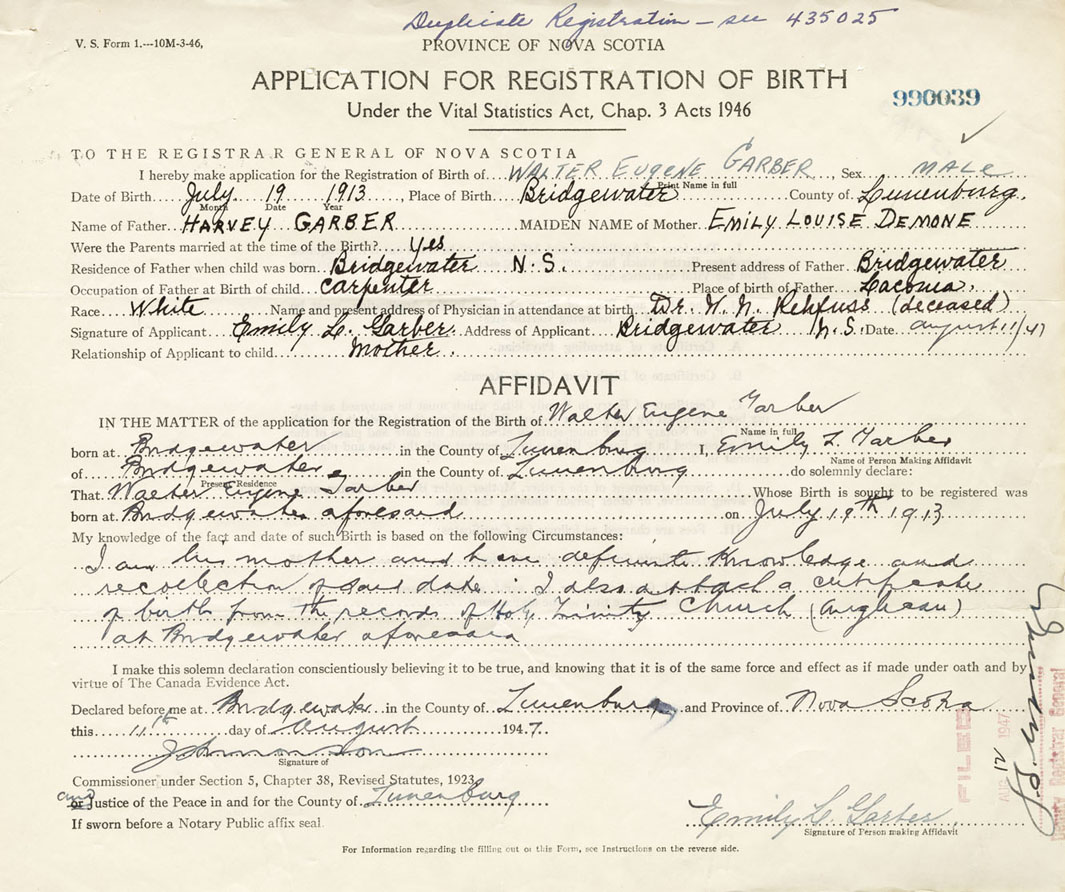 Duplicate Registration – see 435025
V. S. Form 1.---10M-3-46,
PROVINCE OF NOVA SCOTIA
APPLICATION FOR REGISTRATION OF BIRTH
990039
Under the Vital Statistics Act, Chap. 3 Acts 1946
TO THE REGISTRAR GENERAL OF NOVA SCOTIA
I hereby make application for the Registration of Birth of WALTER EUGENE GARBER, Sex MALE
Print Name in full
Date of Birth July 19 1913, Place of Birth Bridgewater County of Lunenburg.
Month Date Year
Name of Father HARVEY GARBER MAIDEN NAME of Mother EMILY LOUISE DEMONE
Were the Parents married at the time of the Birth? yes
Residence of Father when child was born Bridgewater N.S. Present address of Father Bridgewater
Occupation of Father at Birth of child carpenter Place of birth of Father Laconia,
Race White Name and present address of Physician in attendance at birth Dr. W. N. Rehfuss (deceased)
Signature of Applicant Emily L. Garber Address of Applicant Bridgewater N.S. Date august 11/47
Relationship of Applicant to child Mother.
AFFIDAVIT
IN THE MATTER of the application for the Registration of the Birth of Walter Eugene Garber
Name in full
born at Bridgewater in the County of Lunenburg I, Emily L. Garber
Name of Person Making Affidavit
of Bridgewater, in the County of Lunenburg do solemnly declare:
Present Residence
That Walter Eugene Garber Whose Birth is sought to be registered was
born at Bridgewater aforesaid on July 19th 1913
My knowledge of the fact and date of such Birth is based on the following Circumstances:
I am his mother and have definite knowledge and
recollection of said date. I also attach a certificate
of birth from the records of Holy Trinity Church (Anglican)
at Bridgewater aforesaid
I make this solemn declaration conscientiously believing it to be true, and knowing that it is of the same force and effect as if made under oath and by
virtue of The Canada Evidence Act.
Declared before me at Bridgewater in the County of Lunenburg and Province of Nova Scotia
this 11th day of August 1947
Signature of
Commissioner under Section 5, Chapter 38, Revised Statutes, 1923
and
or Justice of the Peace in and for the County of Lunenburg
If sworn before a Notary Public affix seal.
Emily L. Garber
Signature of Person making Affidavit
For Information regarding the filling out of this Form, see Instructions on the reverse side.
FILED
AUG 12 1947
Deputy Registrar General